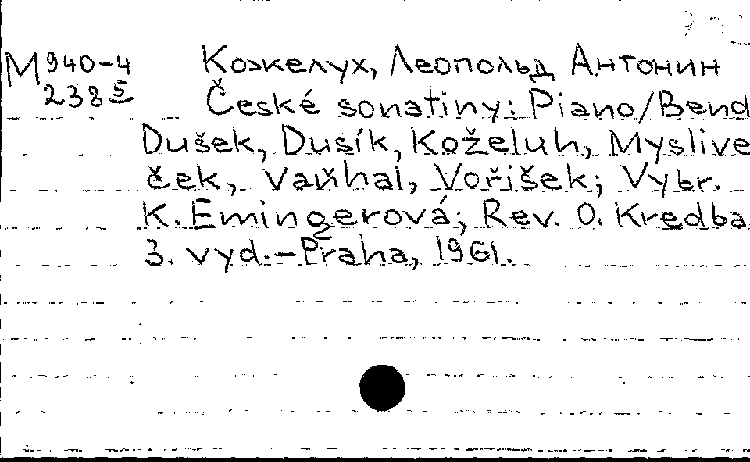 M 940-4
2385
Кожелух, Леопольд Антонин
České sonatiny: Piano/Bend
Dušek, Dusík, Koželuh, Myslive
ček, Vaňhal, Voříšek; Vybr.
K. Emingerová; Rev. O. Kredba
3. vyd.–Praha, 1961.